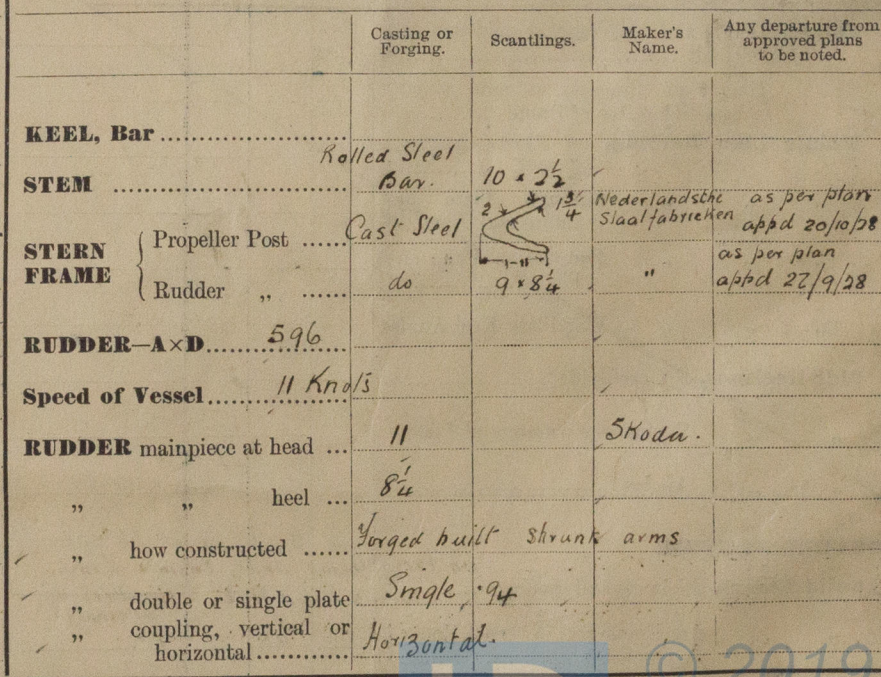 Casting or Forging. Scantlings. Maker's Name. Any departure from approved plans to be noted.
KEEL, Bar
STEM Rolled Steel Bar. 10 × 2½
STERN FRAME { Propeller Post Cast Steel 2 1¾ 1-11 Nederlandsche Staalfabrieken as per plan appd 20/10/28
Rudder „ do 9 × 8¼ " as per plan appd 27/9/28
RUDDER—A×D 596
Speed of Vessel 11 Knots
RUDDER mainpiece at head 11 Skoda.
„ „ heel 8¼
„ how constructed Forged built shrunk arms
„ double or single plate Single, .94
„ coupling, vertical or horizontal Horizontal.
© 2019